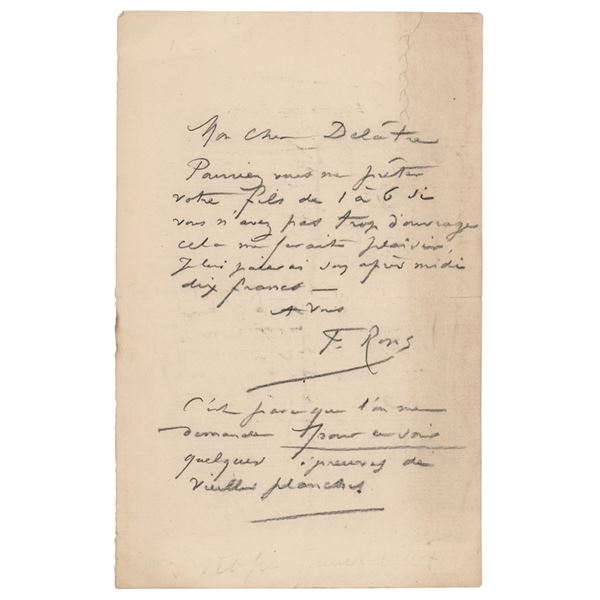 Mon cher Delâtre
Pourriez vous me prêter
votre fils de 1 à 6 si
vous n'avez pas trop d'ouvrage
cela me ferait plaisir,
Je lui paierai son après midi
dix francs —
A vous
F. Rops
C'est parce que l'on me
demande pour ce soir
quelques épreuves de
vieilles planches.